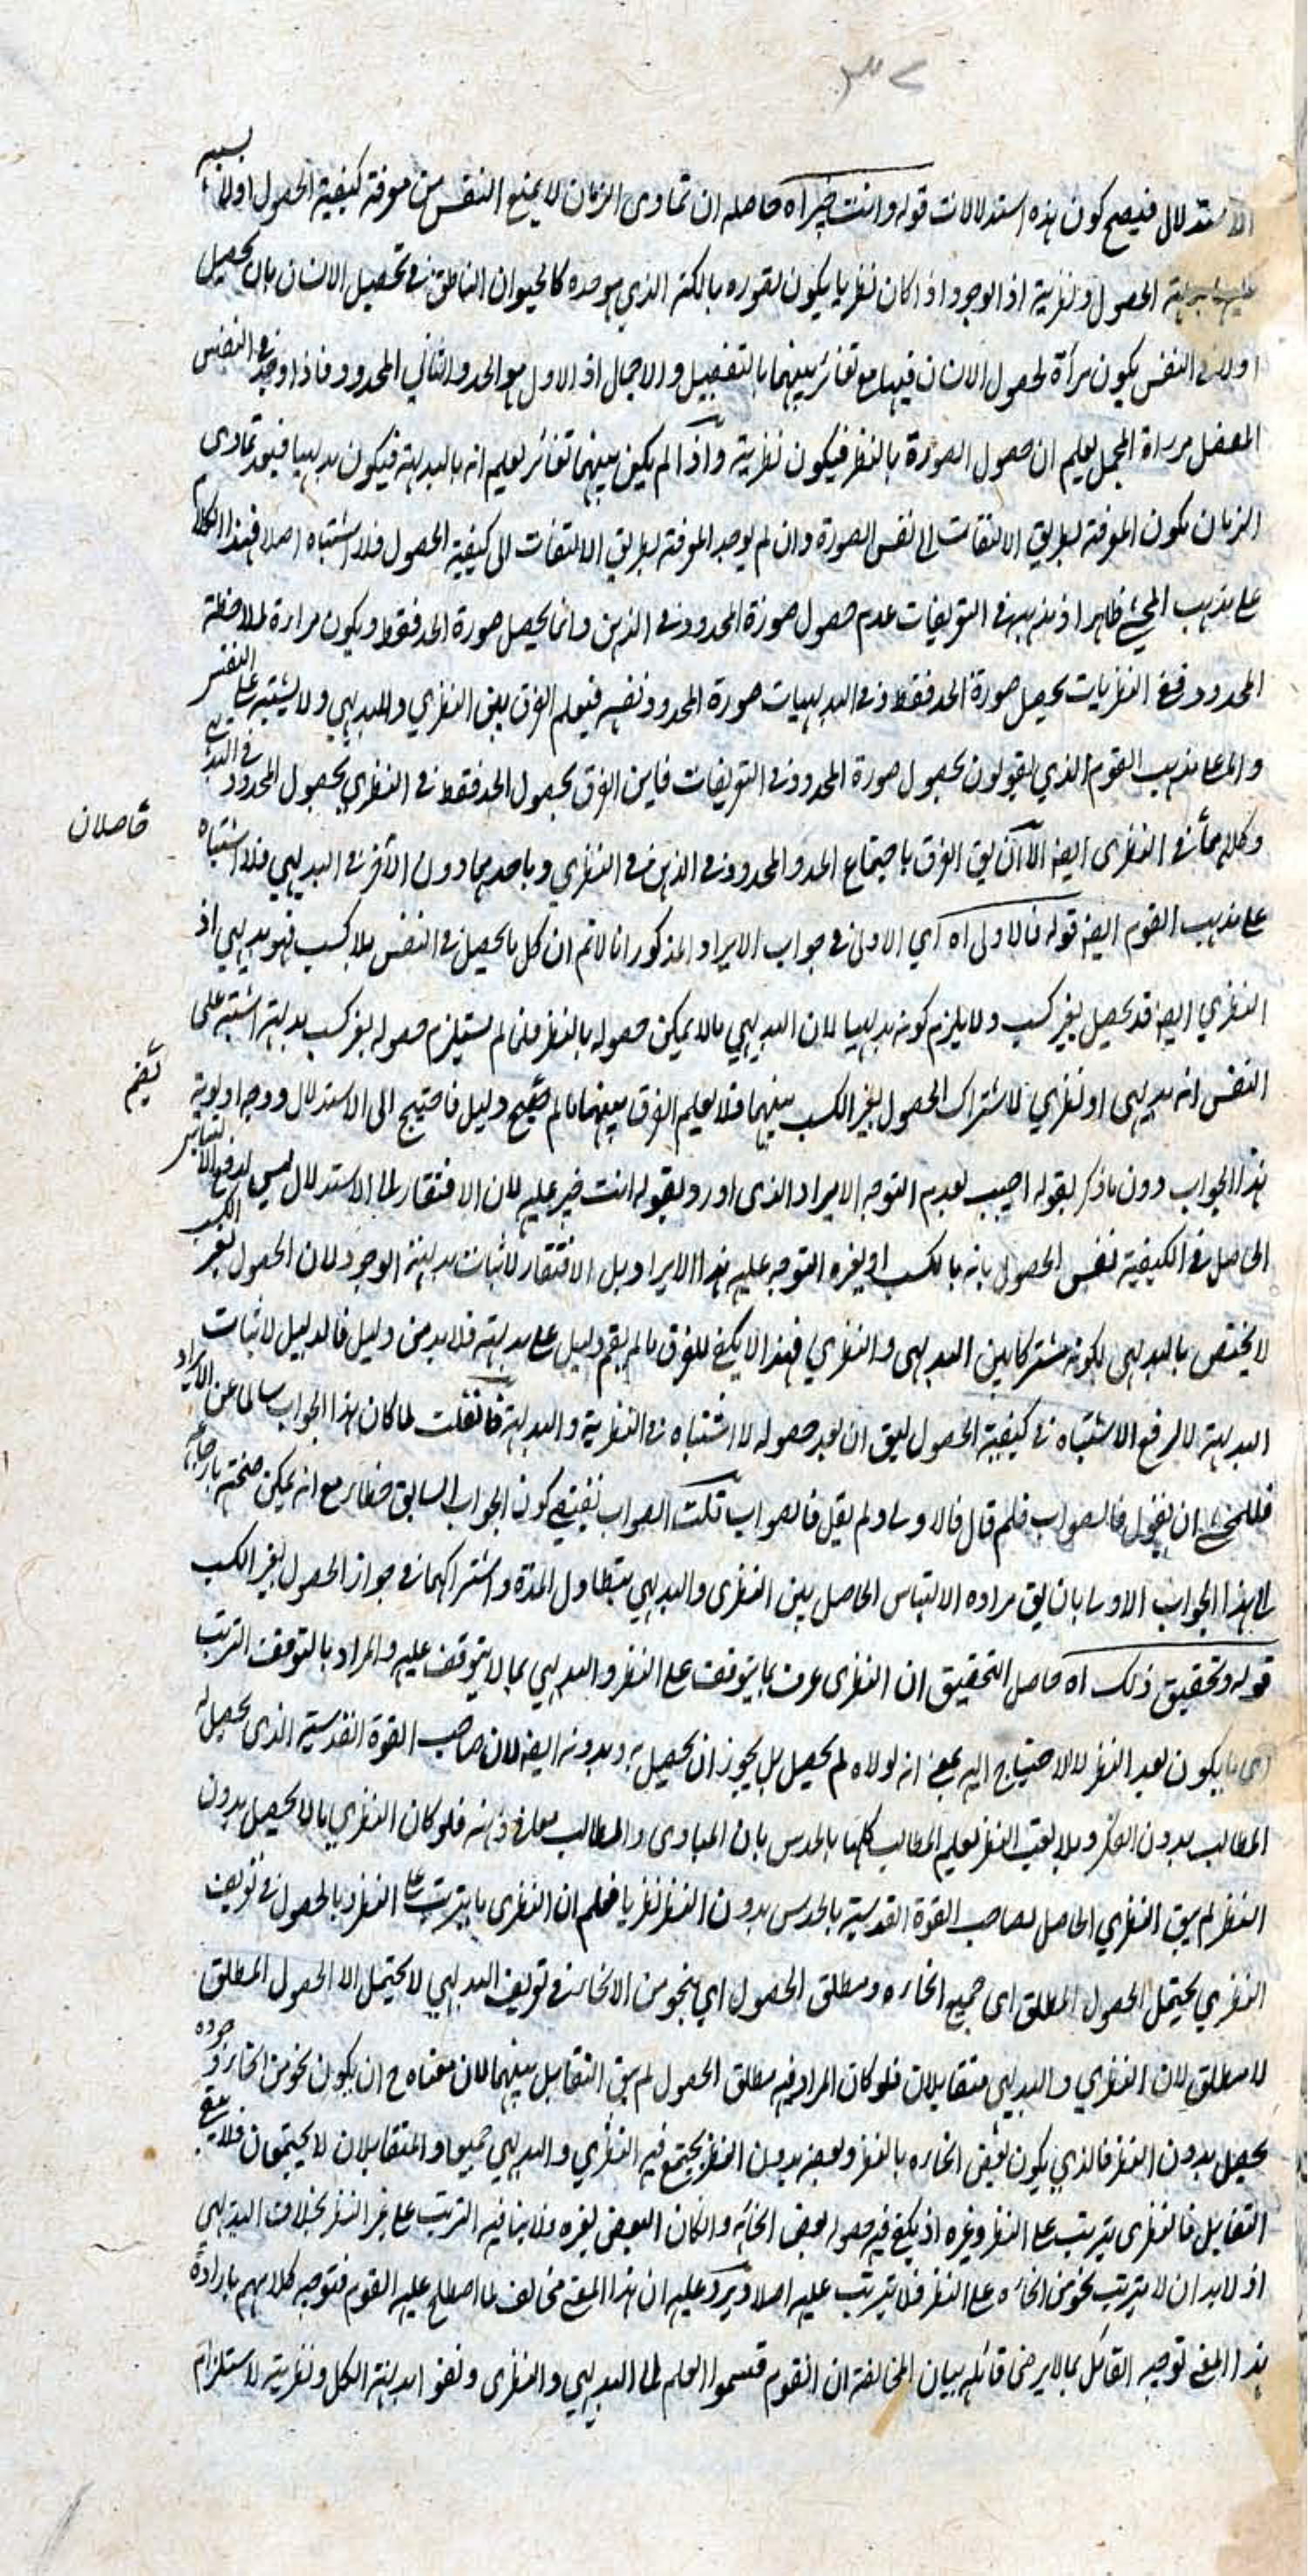 ۳۷
الاستدلال فيصح كون هذه استدلالات قوله وانت خبير اه حاصله ان تمادى الزمان لا يمنع النفس من معرفة كيفية الحصول اولا بسببه
الحصول ونظرية اذ الوجود اذا كان نظريا يكون تصوره بالكنه الذي هو حده كالحيوان الناطق في تحصيل الانسان بان يحصل
اولا في النفس يكون مرآة لحصول الانسان فيها مع تغائر بينهما بالتفصيل والاجمال اذ الاول هو الحد والثاني المحدود فاذا وجد في النفس
المفصل مرءاة المجمل يعلم ان حصول الصورة بالنظر فيكون نظرية واذا لم يكن بينهما تغائر يعلم انه بالبديهة فيكون بديهيا فبعد تمادى
الزمان يكون المعرفة بطريق الالتفات الى نفس الصورة وان لم يوجد المعرفة بطريق الالتفات الى كيفية الحصول فلا اشتباه اصلا فهذا الكلام
على مذهب المحشي ظاهر اذ مذهبه في التعريفات عدم حصول صورة المحدود في الذهن وانما يحصل صورة الحد فقط ويكون مراءة لملاحظة
المحدود ففي النظريات يحصل صورة الحد فقط وفي البديهيات صورة المحدود نفسه فيعلم الفرق بين النظري والبديهي ولا يشتبه على النفس
واما على مذهب القوم الذي يقولون بحصول صورة المحدود في التعريفات فاين الفرق بحصول الحد فقط في النظري بحصول المحدود في البديهي
وكلاهما في النظرى ايضه الا ان يق الفرق باجتماع الحد والمحدود في الذهن في النظري وباحدهما دون الآخر في البديهي فلا اشتباه
حاصلان
على مذهب القوم ايضه قوله فالاولى اه اي الاولى في جواب الايراد المذكور انا لا نم ان كل ما يحصل في النفس بلا كسب فهو بديهي اذ
النظري ايضه قد يحصل بغير كسب ولا يلزم كونه بديهيا لان البديهي ما لا يمكن حصوله بالنظر فلما لم يستلزم حصوله بغير كسب بديهته اشتبه على
النفس انه بديهى او نظري لاشتراك الحصول بغير الكسب بينهما فلا يعلم الفرق بينهما ما لم دليل فاحتيج الى الاستدلال ووجه اولوية
يقم
هذا الجواب دون ما ذكر بقوله اجيب لعدم التوجه الايراد الذى اورد بقوله انت خبير عليه لان الافتقار الى الاستدلال ليس لدفع الالتباس
الحاصل في الكيفية نفس الحصول بانه بالكسب او بغيره التوجه عليه هذا الايراد بل الافتقار لاثبات بديهة الوجود لان الحصول بغير الكسب
لا يختص بالبديهى لكونه مشتركا بين البديهى والنظري فهذا لا يكفى للفرق ما لم يقم دليل على بديهته فلا بد من دليل فالدليل لاثبات
البديهة لا لرفع الاشتباه في كيفية الحصول ليق ان بعد حصوله لا اشتباه في النظرية والبديهة فان قلت لما كان هذا الجواب سالما عن الايراد
فللمحشى ان يقول فالصواب فلم قال فالاولى ولم يقل فالصواب قلت الصواب يقتضى كون الجواب السابق خطاء مع انه يمكن صحته بارجاعه
الى هذا الجواب الاولى بان يق مراده الالتباس الحاصل بين النظرى والبديهي بتطاول المدة واشتراكهما في جواز الحصول بغير الكسب
قوله وتحقيق ذلك اه حاصل التحقيق ان النظرى عرف بما يتوقف على النظر والبديهي بما لا يتوقف عليه والمراد بالتوقف الترتب
اى ما يكون بعد النظر لا الاحتياج اليه بمعنى انه لولاه لم يحصل بل يجوز ان يحصل به وبدونه ايضه لان صاحب القوة القدسية الذى يحصل له
المطالب بدون الفكر وبلا تعب النظر يعلم المطالب كلها بالحدس بان المبادى والمطالب معا في ذهنه فلو كان النظري ما لا يحصل بدون
النظر لم يبق النظري الحاصل لصاحب القوة القدسية بالحدس بدون النظر نظريا فعلم ان النظرى ما يترتب على النظر وبالحصول في تعريف
النظري يحتمل الحصول المطلق اى جميع انحاءه ومطلق الحصول اي بنحو من الانحاء وفي تعريف البديهي لا يحتمل الا الحصول المطلق
لا مطلق لان النظري والبديهي متقابلان فلو كان المراد فيه مطلق الحصول لم يبق التقابل بينهما لان معناه ح ان يكون نحو من انحاء وجوده
يحصل بدون النظر فالذي يكون بعض انحاءه بالنظر وبعضه بدون النظر يجتمع فيه النظري والبديهي جميعا والمتقابلان لا يجتمعان فلا يبقى
التقابل فالنظرى يترتب على النظر وغيره اذ يكفي فيه حصوله بعض انحائه وانكان البعض بغيره فلا ينافيه الترتب على غير النظر بخلاف البديهي
اذ لا بد ان لا يترتب نحو من انحاءه على النظر فلا يترتب عليه اصلا ويرد عليه ان هذا المعنى مخالف لما اصطلح عليه القوم فتوجيه كلامهم بارادة
هذا المعنى توجيه القائل بما لا يرضى قائله بيان المخالفة ان القوم قسموا العلم الى البديهي والنظرى ونفوا بديهة الكل ونظريته لاستلزام